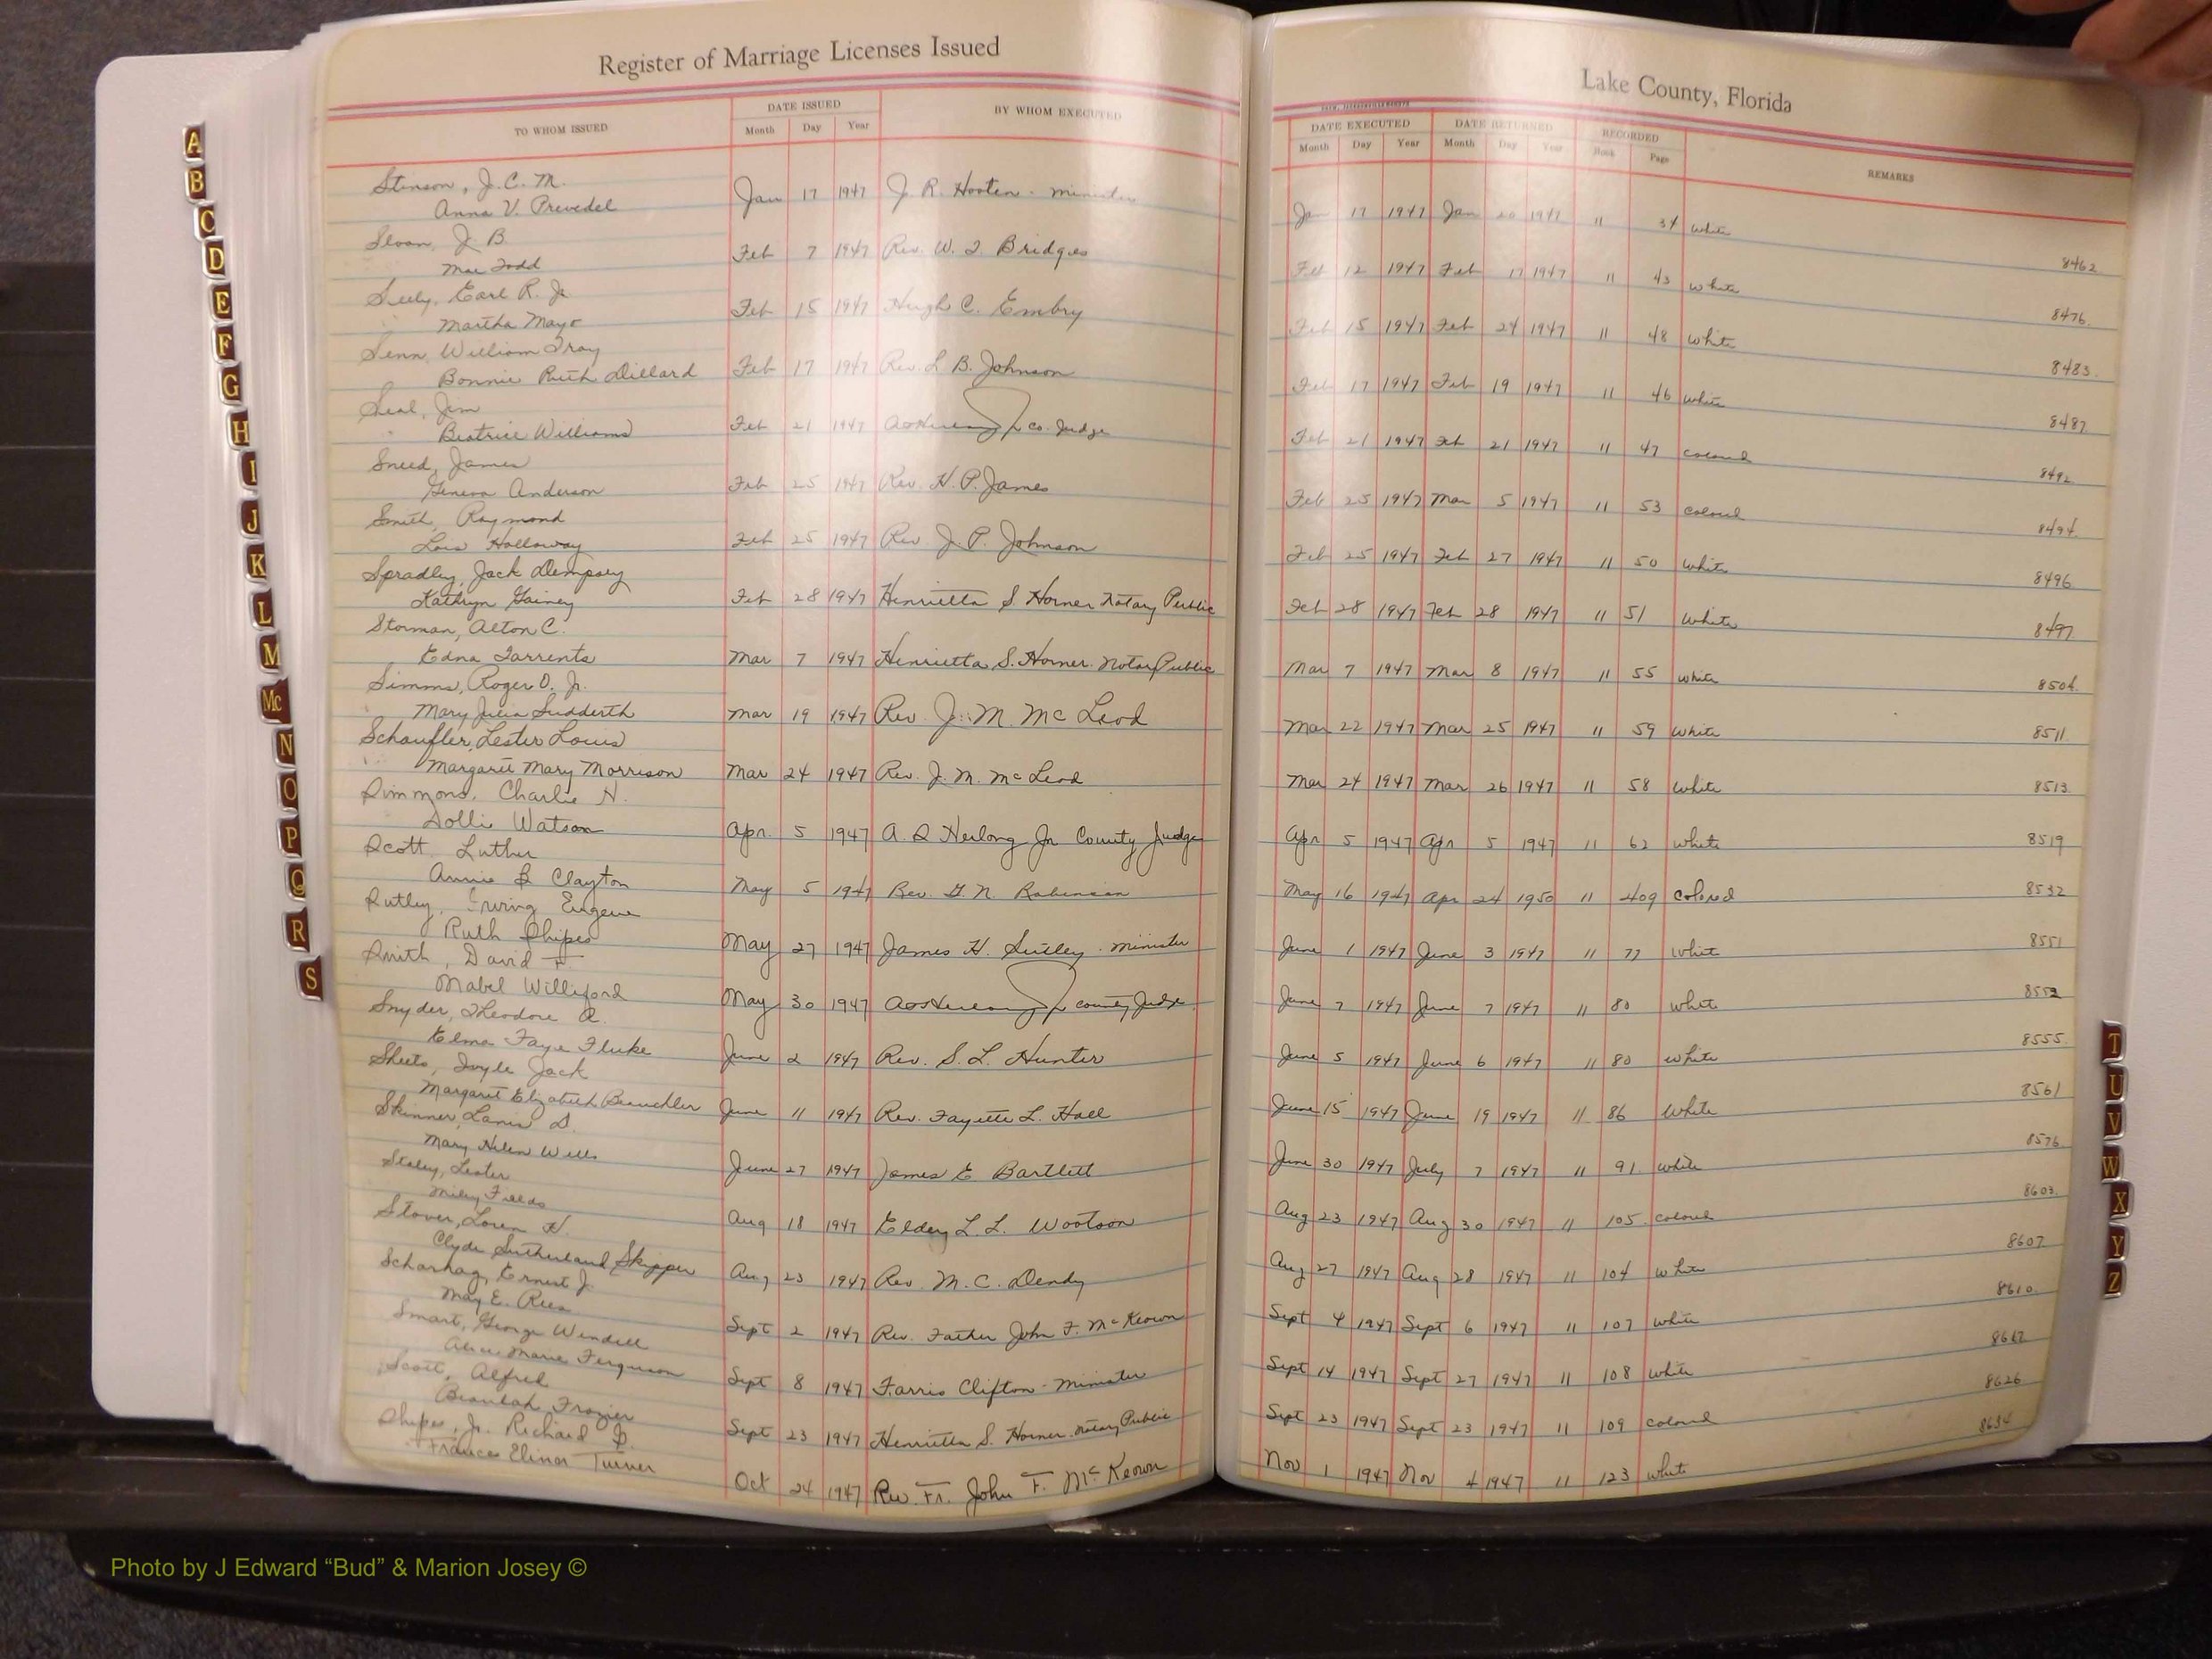 Register of Marriage Licenses Issued
TO WHOM ISSUED
DATE ISSUED
Month Day Year
BY WHOM EXECUTED
Stinson, J. C. M.
Anna V. Prevedel
Jan 17 1947 J. R. Hooten - minister
Sloan, J. B.
Mae Todd
Feb 7 1947 Rev. W. J. Bridges
Seely, Earl R. Jr
Martha Mayo
Feb 15 1947 Hugh C. Embry
Senn, William Troy
Bonnie Ruth Dillard
Feb 17 1947 Rev. L B. Johnson
Seal, Jim
Beatrice Williams
Feb 21 1947 Co. Judge
Sneed, James
Geneva Anderson
Feb 25 1947 Rev. H. P. James
Smith, Raymond
Lois Holloway
Feb 25 1947 Rev. J. P. Johnson
Spradley, Jack Dempsey
Kathryn Gainey
Feb 28 1947 Henrietta S. Horner Notary Public
Storman, Alton C.
Edna Torrents
Mar 7 1947 Henrietta S. Horner. Notary Public
Simms, Roger O. Jr.
Mary Julia Sudderth
Mar 19 1947 Rev. J. M. McLeod
Schaufler, Lester Louis
Margaret Mary Morrison
Mar 24 1947 Rev. J. M. McLeod
Simmons, Charlie H.
Dolli Watson
Apr. 5 1947 A. S Herlong Jr County Judge
Scott Luther
Annie B Clayton
May 5 1947 Rev. G. N. Robinson
Sutley, Irving Eugene
Ruth Shipes
May 27 1947 James H. Sutley - Minister
Smith, David F.
Mabel Williford
May 30 1947 County Judge
Snyder, Theodore A.
Elma Faye Fluke
June 2 1947 Rev. S. L. Hunter
Sheets, Doyle Jack
Margaret Elizabeth Beuchler
June 11 1947 Rev. Fayette L. Hall
Skinner, Lanis D.
Mary Helen Wells
June 27 1947 James E Bartlett
Staley, Lester
Miley Fields
Aug 18 1947 Elder L. L. Wootson
Stover, Loren H.
Clyde Sutherland Skipper
Aug 23 1947 Rev. M. C. Dendy
Scharnag, Ernest J.
May E. Rees
Sept 2 1947 Rev. Father John F. McKeown
Smart, George Wendell
Alice Marie Ferguson
Sept 8 1947 Farris Clifton - Minister
Scott, Alfred
Beaulah Frazier
Sept 23 1947 Henrietta S. Horner. Notary Public
Shipes, Jr. Richard D.
Frances Elinor Turner
Oct 24 1947 Rev. Fr. John F. McKeown
Lake County, Florida
DATE EXECUTED DATE RETURNED RECORDED
Month Day Year Month Day Year Book Page
REMARKS
Jan 17 1947 Jan 20 1947 11 34 white
8462
Feb 12 1947 Feb 17 1947 11 43 white
8476
Feb 15 1947 Feb 24 1947 11 48 white
8483
Feb 17 1947 Feb 19 1947 11 46 white
8487
Feb 21 1947 Feb 21 1947 11 47 colored
8492
Feb 25 1947 Mar 5 1947 11 53 colored
8494
Feb 25 1947 Feb 27 1947 11 50 white
8496
Feb 28 1947 Feb 28 1947 11 51 white
8497
Mar 7 1947 Mar 8 1947 11 55 white
8504
Mar 22 1947 Mar 25 1947 11 59 white
8511
Mar 24 1947 Mar 26 1947 11 58 white
8513
Apr 5 1947 Apr 5 1947 11 62 white
8519
May 16 1947 Apr 24 1950 11 409 colored
8532
June 1 1947 June 3 1947 11 77 white
8551
June 7 1947 June 7 1947 11 80 white
8552
June 5 1947 June 6 1947 11 80 white
8555
June 15 1947 June 19 1947 11 86 white
8561
June 30 1947 July 7 1947 11 91 white
8576
Aug 23 1947 Aug 30 1947 11 105 colored
8603
Aug 27 1947 Aug 28 1947 11 104 white
8607
Sept 4 1947 Sept 6 1947 11 107 white
8610
Sept 14 1947 Sept 27 1947 11 108 white
8617
Sept 23 1947 Sept 23 1947 11 109 colored
8626
Nov 1 1947 Nov 4 1947 11 123 white
8634
A
B
C
D
E
F
G
H
I
J
K
L
M
Mc
N
O
P
Q
R
S
T
U
V
W
X
Y
Z
Photo by J Edward “Bud” & Marion Josey ©